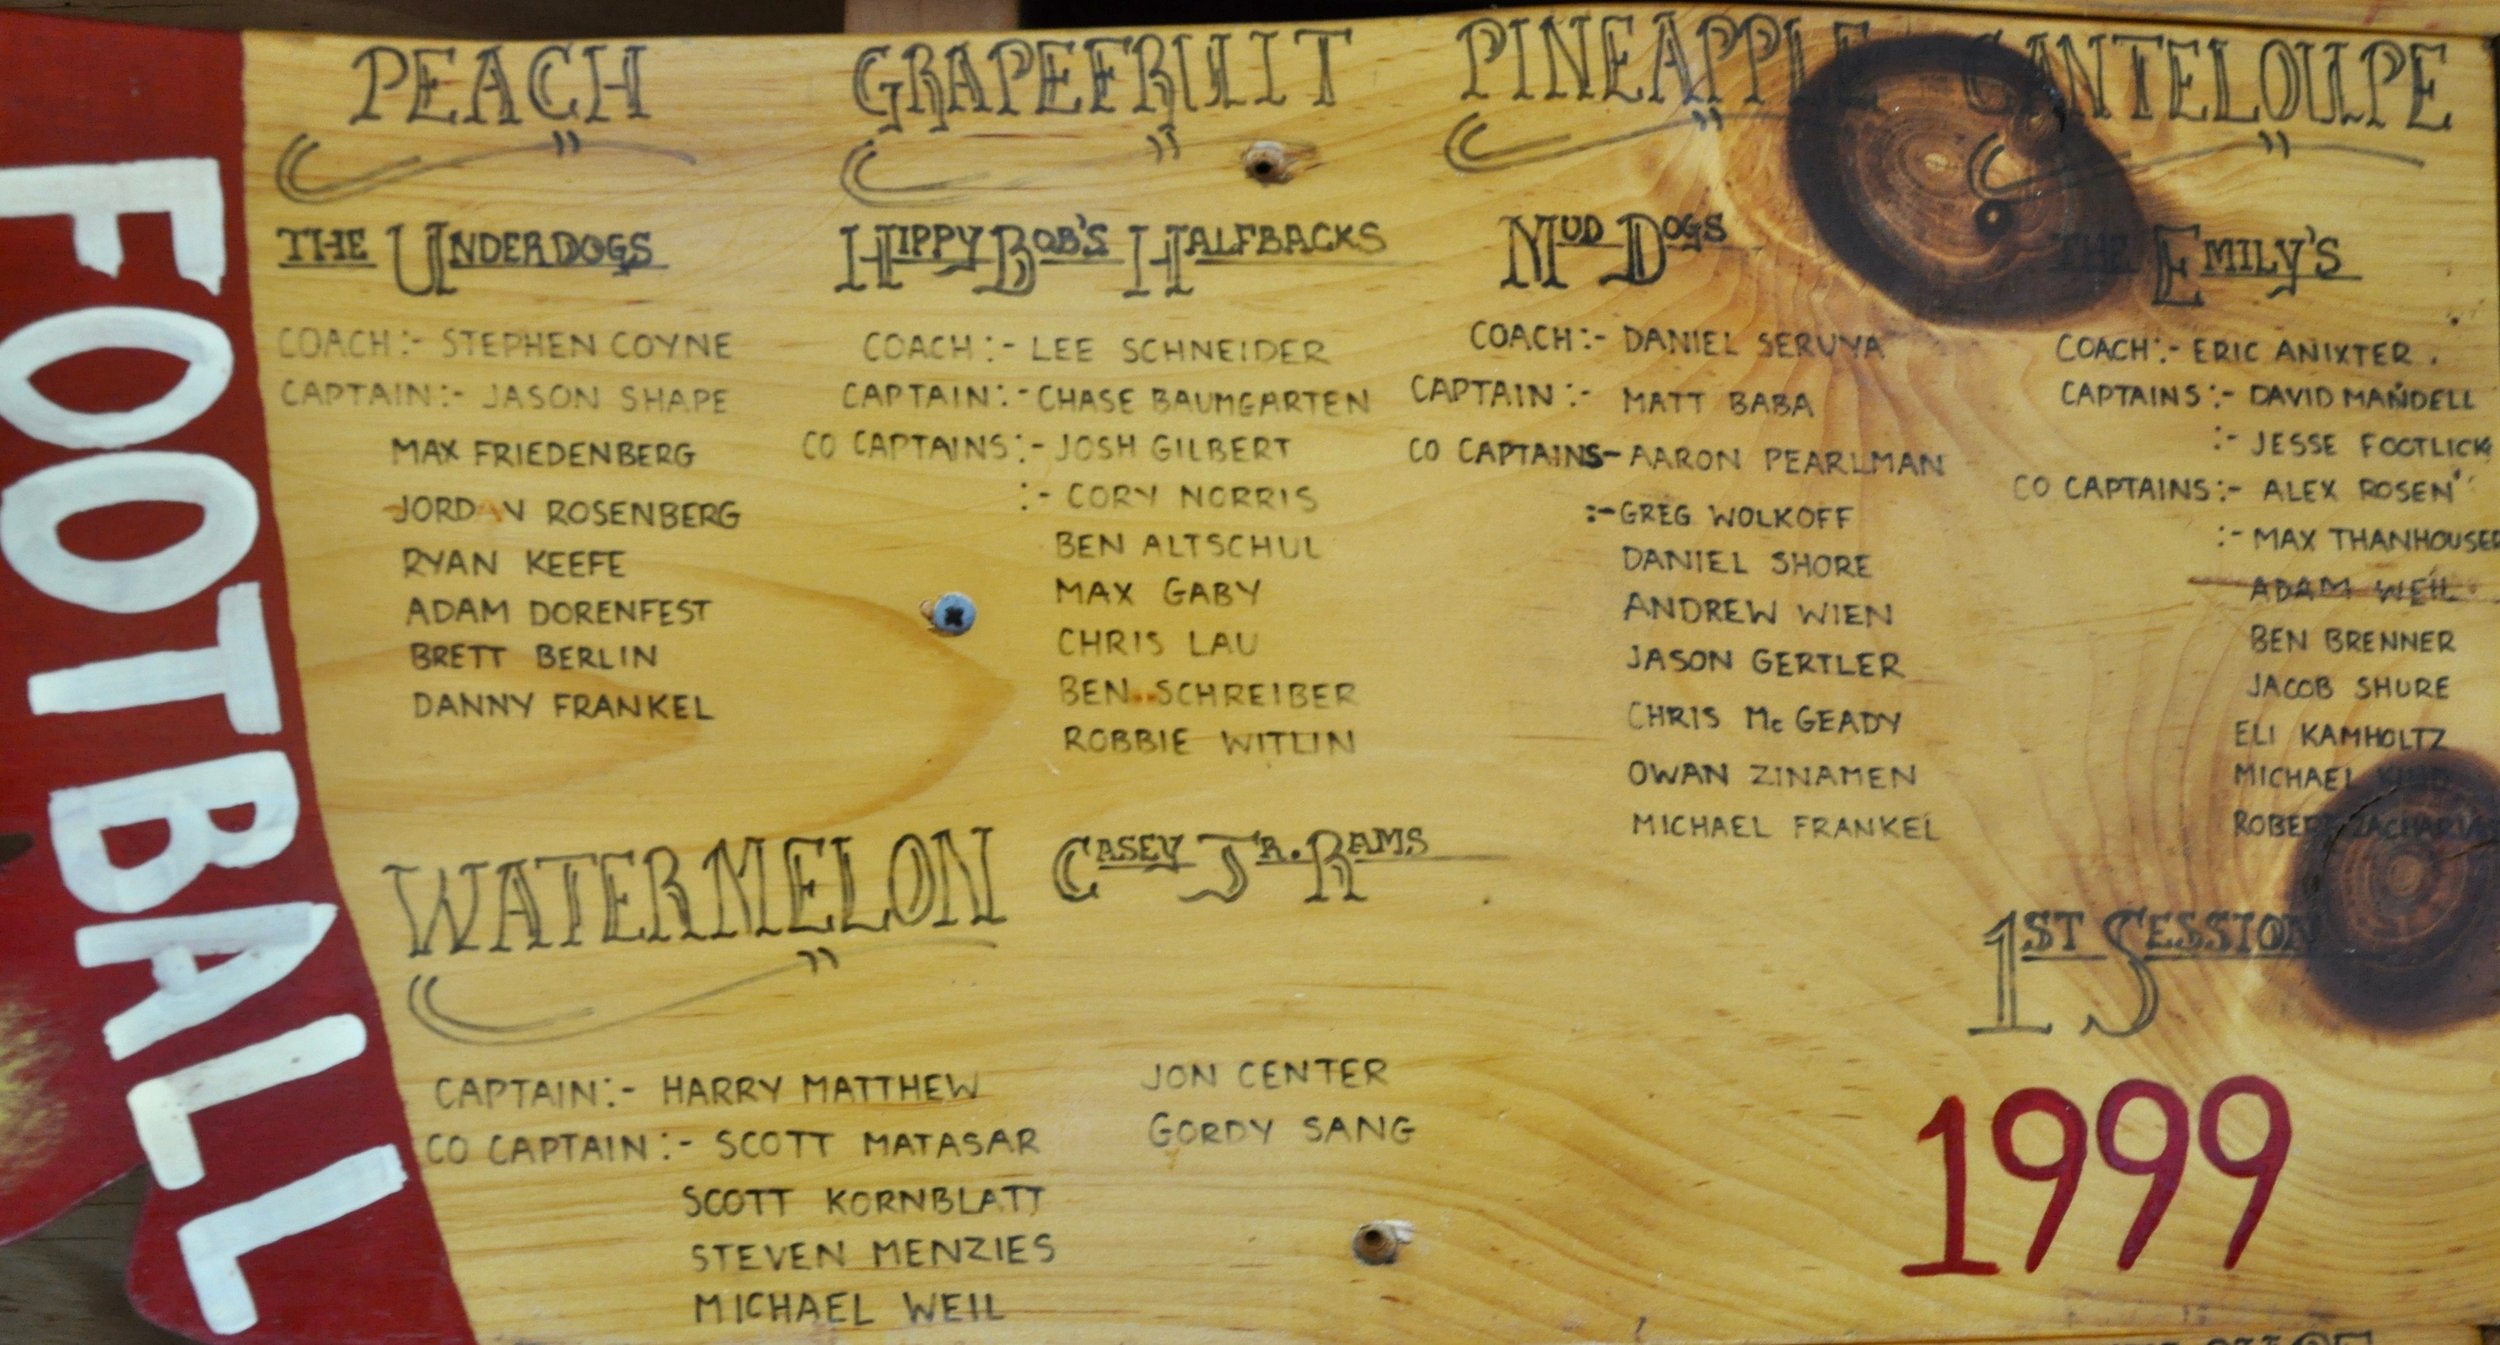 FOOTBALL
PEACH
THE UNDERDOGS
COACH:- STEPHEN COYNE
CAPTAIN:- JASON SHAPE
MAX FRIEDENBERG
JORDAN ROSENBERG
RYAN KEEFE
ADAM DORENFEST
BRETT BERLIN
DANNY FRANKEL
GRAPEFRUIT
HIPPY BOB'S HALFBACKS
COACH:- LEE SCHNEIDER
CAPTAIN:- CHASE BAUMGARTEN
CO CAPTAINS:- JOSH GILBERT
:- CORY NORRIS
BEN ALTSCHUL
MAX GABY
CHRIS LAU
BEN SCHREIBER
ROBBIE WITLIN
PINEAPPLE
MUD DOGS
COACH:- DANIEL SERUYA
CAPTAIN:- MATT BABA
CO CAPTAINS- AARON PEARLMAN
:- GREG WOLKOFF
DANIEL SHORE
ANDREW WIEN
JASON GERTLER
CHRIS Mc GEADY
OWAN ZINAMEN
MICHAEL FRANKEL
CANTELOUPE
THE EMILY'S
COACH:- ERIC ANIXTER.
CAPTAINS:- DAVID MANDELL
:- JESSE FOOTLICK
CO CAPTAINS:- ALEX ROSEN
:- MAX THANHOUSER
ADAM WEIL
BEN BRENNER
JACOB SHURE
ELI KAMHOLTZ
MICHAEL
ROBERT
WATERMELON
CASEY JR. RAMS
CAPTAIN:- HARRY MATTHEW
CO CAPTAIN:- SCOTT MATASAR
SCOTT KORNBLATT
STEVEN MENZIES
MICHAEL WEIL
JON CENTER
GORDY SANG
1ST SESSION
1999